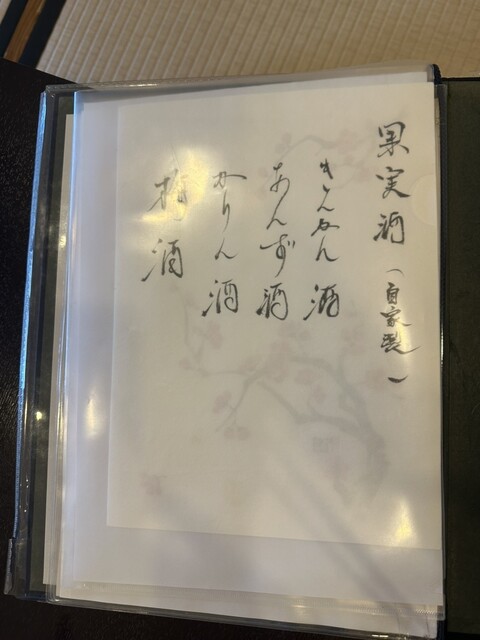 果実酒（自家製）
きんかん酒
あんず酒
かりん酒
梅酒